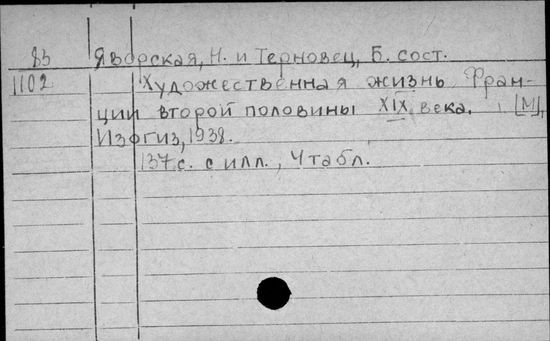 85 Яворская, Н. и Терновец, Б. сост.
1102 Художественная жизнь Фран-
ции второй половины XIX века. [М],
Изогиз, 1938.
137 с. с илл., 4 табл.